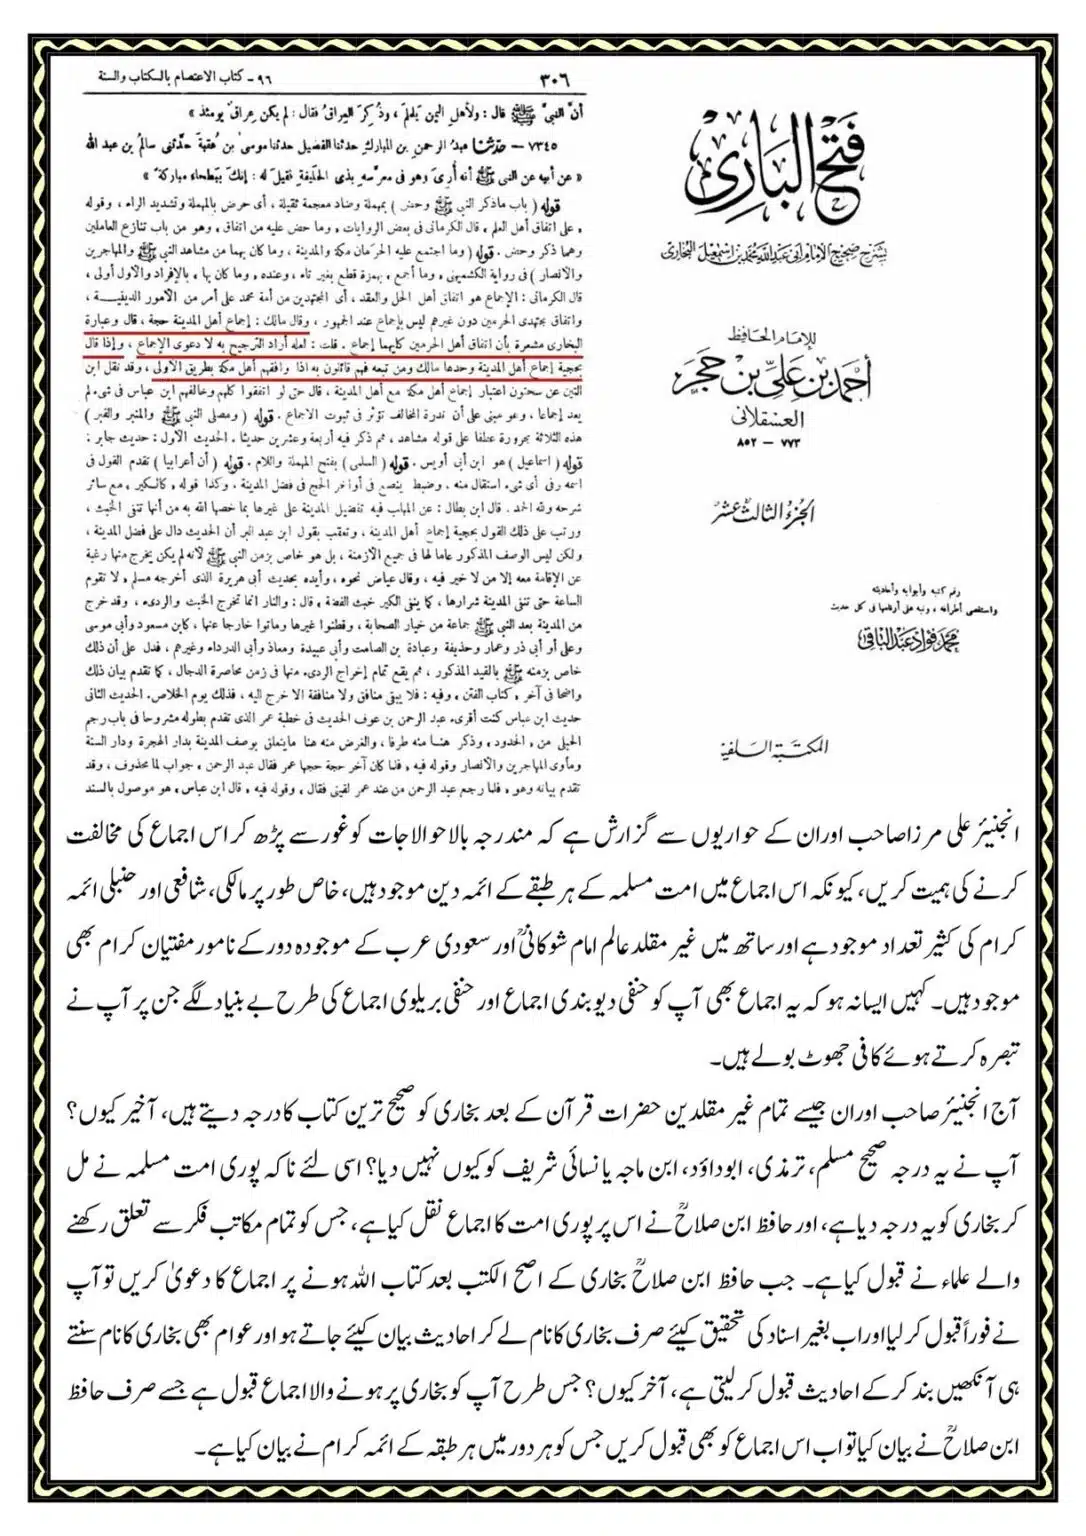 ٣٠٦
٩٦ - كتاب الاعتصام بالكتاب والسنة
أنَّ النبيَّ ﷺ قال : ولأهلِ اليمن يَلملم ، وذُكِرَ العِراقُ فقال : لم يكن عِراقٌ يومئذ »
٧٣٤٥ - حدثنا عبدُ الرحمنِ بن المبارك حدثنا الفضيل حدثنا موسى بن عُقبة حدَّثني سالمُ بن عبد الله
« عن أبيه عن النبي ﷺ أنه أُرِيَ وهو في معرَّسهِ بذي الحليفة فقيل له : إنك ببطحاء مباركة »
قوله ( باب ماذكر النبي ﷺ وحض ) بمهملة وضاد معجمة ثقيلة ، أى حرض بالمهملة وتشديد الراء ، وقوله
، على اتفاق أهل العلم ، قال الكرمانى فى بعض الروايات ، وما حض عليه من اتفاق ، وهو من باب تنازع العاملين
وهما ذكر وحض . قوله ( وما اجتمع عليه الحرمان مكة والمدينة ، وما كان بهما من مشاهد النبي ﷺ والمهاجرين
والانصار ) فى رواية الكشميهنى ، وما أجمع ، بهمزة قطع بغير تاء ، وعنده ، وما كان بها ، بالإفراد والأول أولى ،
قال الكرمانى : الإجماع هو اتفاق أهل الحل والعقد ، أى المجتهدين من أمة محمد على أمر من الأمور الدينية ،
واتفاق مجتهدى الحرمين دون غيرهم ليس بإجماع عند الجمهور ، وقال مالك : إجماع أهل المدينة حجة ، قال وعبارة
البخارى مشعرة بأن اتفاق أهل الحرمين كليهما إجماع . قلت : لعله أراد الترجيح به لا دعوى الإجماع ، وإذا قال
بحجية إجماع أهل المدينة وحدها مالك ومن تبعه فهم قائلون به اذا وافقهم أهل مكة بطريق الأولى ، وقد نقل ابن
التين عن سحنون اعتبار إجماع أهل مكة مع أهل المدينة ، قال حتى لو اتفقوا كلهم وخالفهم ابن عباس فى شىء لم
يعد إجماعا ، وهو مبنى على أن ندرة المخالف تؤثر فى ثبوت الاجماع . قوله ( ومصلى النبي ﷺ والمنبر والقبر )
هذه الثلاثة مجرورة عطفا على قوله مشاهد ، ثم ذكر فيه أربعة وعشرين حديثا . الحديث الأول : حديث جابر :
قوله ( اسماعيل ) هو ابن أبى أويس . قوله ( السلمى ) بفتح المهملة واللام . قوله ( أن أعرابيا ) تقدم القول فى
اسمه وفى أى شىء استقال منه ، وضبط ينصع فى أواخر الحج فى فضل المدينة ، وكذا قوله ، كالكير ، مع سائر
شرحه ولله الحمد . قال ابن بطال : عن المهلب فيه تفضيل المدينة على غيرها بما خصها الله به من أنها تنفى الخبث ،
ورتب على ذلك القول بحجية إجماع أهل المدينة ، وتعقب بقول ابن عبد البر أن الحديث دال على فضل المدينة ،
ولكن ليس الوصف المذكور عاما لها فى جميع الأزمنة ، بل هو خاص بزمن النبي ﷺ لأنه لم يكن يخرج منها رغبة
عن الإقامة معه إلا من لا خير فيه ، وقال عياض نحوه ، وأيده بحديث أبى هريرة الذى أخرجه مسلم ، لا تقوم
الساعة حتى تنفى المدينة شرارها ، كما ينفى الكير خبث الفضة ، قال : والنار انما تخرج الخبث والردىء ، وقد خرج
من المدينة بعد النبي ﷺ جماعة من خيار الصحابة ، وقطنوا غيرها وماتوا خارجا عنها ، كابن مسعود وأبى موسى
وعلى أو أبى ذر وعمار وحذيفة وعبادة بن الصامت وأبى عبيدة ومعاذ وأبى الدرداء وغيرهم ، فدل على أن ذلك
خاص بزمنه ﷺ بالقيد المذكور ، ثم يقع تمام إخراج الردىء منها فى زمن محاصرة الدجال ، كما تقدم بيان ذلك
واضحا فى آخر ، كتاب الفتن ، وفيه : فلا يبقى منافق ولا منافقة الا خرج اليه ، فذلك يوم الخلاص . الحديث الثانى
حديث ابن عباس كنت أقرىء عبد الرحمن بن عوف الحديث فى خطبة عمر الذى تقدم بطوله مشروحا فى باب رجم
الحبلى من ، الحدود ، وذكر هنا منه طرفا ، والغرض منه هنا مايتعلق بوصف المدينة بدار الهجرة ودار السنة
ومأوى المهاجرين والأنصار وقوله فيه ، فلما كان آخر حجة حجها عمر فقال عبد الرحمن ، جواب لما محذوف ، وقد
تقدم بيانه وهو ، فلما رجع عبد الرحمن من عند عمر لقينى فقال ، وقوله فيه ، قال ابن عباس ، هو موصول بالسند
فتح البارى
بشرح صحيح الإمام أبى عبد الله محمد بن إسمعيل البخارى
للإمام الحافظ
أحمد بن على بن حجر
العسقلانى
٧٧٣ - ٨٥٢
الجزء الثالث عشر
رقم كتبه وأبوابه وأحاديثه
واستقصى أطرافه ، ونبه على أرقامها فى كل حديث
محمد فؤاد عبد الباقى
المكتبة السلفية
انجنیئر علی مرزا صاحب اور ان کے حواریوں سے گزارش ہے کہ مندرجہ بالا حوالاجات کو غور سے پڑھ کر اس اجماع کی مخالفت
کرنے کی ہمیت کریں، کیونکہ اس اجماع میں امت مسلمہ کے ہر طبقے کے ائمہ دین موجود ہیں، خاص طور پر مالکی، شافعی اور حنبلی ائمہ
کرام کی کثیر تعداد موجود ہے اور ساتھ میں غیر مقلد عالم امام شوکانیؒ اور سعودی عرب کے موجودہ دور کے نامور مفتیان کرام بھی
موجود ہیں۔ کہیں ایسا نہ ہو کہ یہ اجماع بھی آپ کو حنفی دیوبندی اجماع اور حنفی بریلوی اجماع کی طرح بے بنیاد لگے جن پر آپ نے
تبصرہ کرتے ہوئے کافی جھوٹ بولے ہیں۔
آج انجنیئر صاحب اور ان جیسے تمام غیر مقلدین حضرات قرآن کے بعد بخاری کو صحیح ترین کتاب کا درجہ دیتے ہیں، آخیر کیوں؟
آپ نے یہ درجہ صحیح مسلم، ترمذی، ابوداؤد، ابن ماجہ یا نسائی شریف کو کیوں نہیں دیا؟ اسی لئے نا کہ پوری امت مسلمہ نے مل
کر بخاری کو یہ درجہ دیا ہے، اور حافظ ابن صلاحؒ نے اس پر پوری امت کا اجماع نقل کیا ہے، جس کو تمام مکاتب فکر سے تعلق رکھنے
والے علماء نے قبول کیا ہے۔ جب حافظ ابن صلاحؒ بخاری کے اصح الکتب بعد کتاب اللہ ہونے پر اجماع کا دعویٰ کریں تو آپ
نے فوراً قبول کر لیا اور اب بغیر اسناد کی تحقیق کیئے صرف بخاری کا نام لے کر احادیث بیان کیئے جاتے ہو اور عوام بھی بخاری کا نام سنتے
ہی آنکھیں بند کر کے احادیث قبول کر لیتی ہے، آخر کیوں؟ جس طرح آپ کو بخاری پر ہونے والا اجماع قبول ہے جسے صرف حافظ
ابن صلاحؒ نے بیان کیا تو اب اس اجماع کو بھی قبول کریں جس کو ہر دور میں ہر طبقہ کے ائمہ کرام نے بیان کیا ہے۔